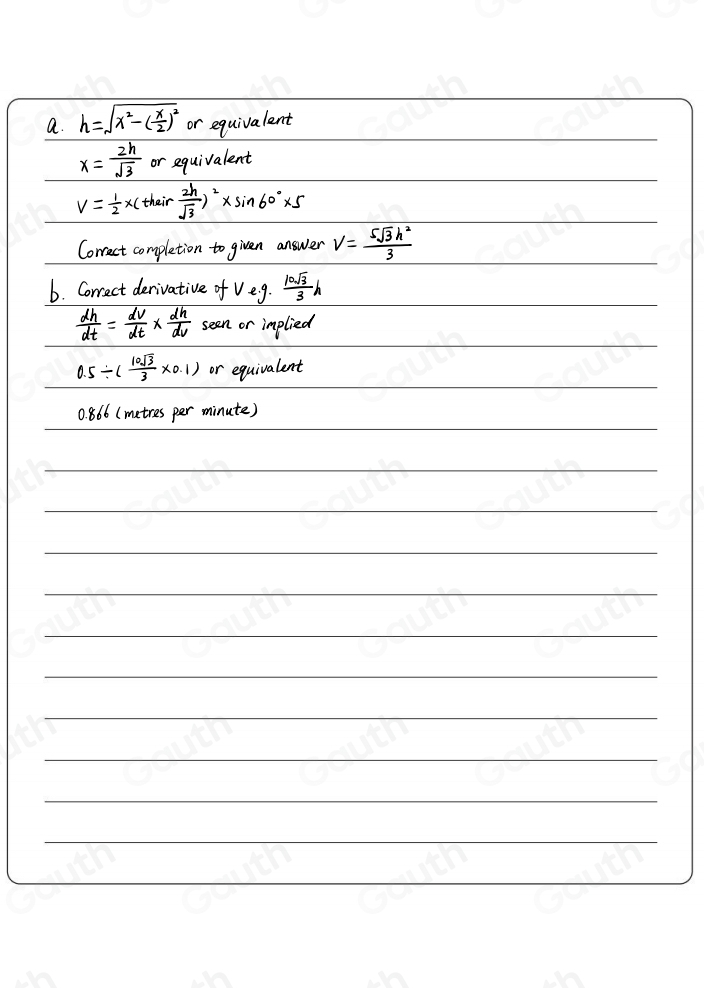 a. h=√(x²-(x/2)²) or equivalent
x = 2h/√3 or equivalent
V = 1/2 ×(their 2h/√3)² × sin 60° ×5
Correct completion to given answer V = 5√3 h²/3
b. Correct derivative of V e.g. 10√3/3 h
dh/dt = dv/dt × dh/dv seen or implied
0.5 ÷ ( 10√3/3 ×0.1) or equivalent
0.866 (metres per minute)